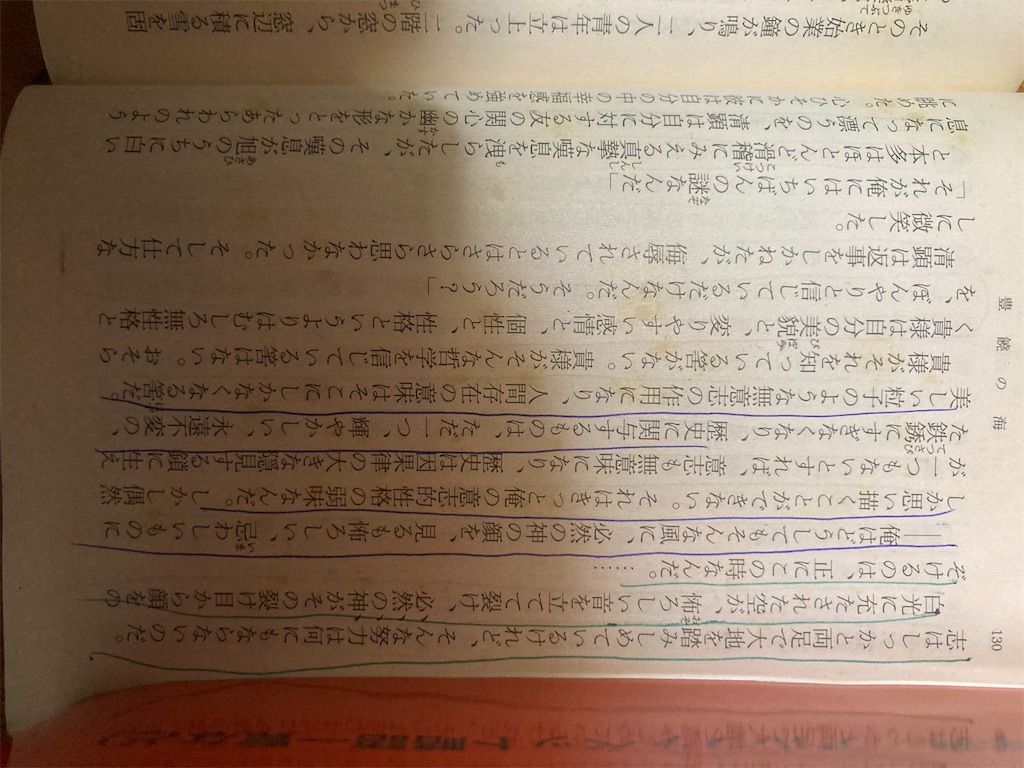 豊饒の海
130
志はしっかと両足で大地を踏みしめているけれど、そんな努力は何にもならないのだ。
白光に充たされた空が、怖ろしい音を立てて裂け、必然の神がその裂け目から顔をの
ぞけるのは、正にこの時なんだ。……
――俺はどうしてもそんな風に、必然の神の顔を、見るも怖ろしい、忌わしいものに
しか思い描くことができない。それはきっと俺の意志的性格の弱味なんだ。しかし偶然
が一つもないとすれば、意志も無意味になり、歴史は因果律の大きな隠見する鎖に生え
た鉄錆にすぎなくなり、歴史に関与するものは、ただ一つ、輝やかしい、永遠不変の、
美しい粒子のような無意志の作用になり、人間存在の意味はそこにしかなくなる筈だ。
貴様がそれを知っている筈がない。貴様がそんな哲学を信じている筈はない。おそら
く貴様は自分の美貌と、変りやすい感情と、個性と、性格というよりはむしろ無性格と
を、ぼんやりと信じているだけなんだ。そうだろう?」
清顕は返事をしかねたが、侮辱されているとはさらさら思わなかった。そして仕方な
しに微笑した。
「それが俺にはいちばんの謎なんだ」
と本多はほとんど滑稽にみえる真摯な嘆息を洩らしたが、その嘆息が旭のうちに白い
息になって漂うのを、清顕は自分に対する友の関心の幽かな形をとったあらわれのよう
に眺めた。心ひそかに彼は自分の中の幸福感を強めていた。
そのとき始業の鐘が鳴り、二人の青年は立上った。二階の窓から、窓辺に積る雪を固